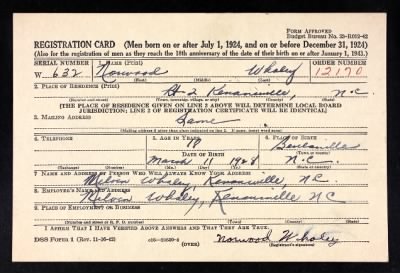 FORM APPROVED
Budget Bureau No. 33-R012-42
REGISTRATION CARD (Men born on or after July 1, 1924, and on or before December 31, 1924)
(Also for the registration of men as they reach the 18th anniversary of the date of their birth on or after January 1, 1943.)
SERIAL NUMBER 1. NAME (Print) ORDER NUMBER
W 632 Norwood Whaley 12170
2. PLACE OF RESIDENCE (Print)
Rt 2 Kenansville, N.C.
(THE PLACE OF RESIDENCE GIVEN ON LINE 2 ABOVE WILL DETERMINE LOCAL BOARD
JURISDICTION; LINE 2 OF REGISTRATION CERTIFICATE WILL BE IDENTICAL)
3. MAILING ADDRESS
Same
4. TELEPHONE 5. AGE IN YEARS 6. PLACE OF BIRTH
DATE OF BIRTH
March 11 N.C.
(Exchange) (Number) (Mo.) (Day) (Yr.) (State or country)
7. NAME AND ADDRESS OF PERSON WHO WILL ALWAYS KNOW YOUR ADDRESS
Melvin Whaley, Kenansville, NC
8. EMPLOYER'S NAME AND ADDRESS
Melvin Whaley, Kenansville NC
9. PLACE OF EMPLOYMENT OR BUSINESS
(Number and street or R. F. D. number) (Town) (County) (State)
I AFFIRM THAT I HAVE VERIFIED ABOVE ANSWERS AND THAT THEY ARE TRUE.
DSS Form 1 (Rev. 11-16-42) (OVER) Norwood Whaley
(Registrant's signature)